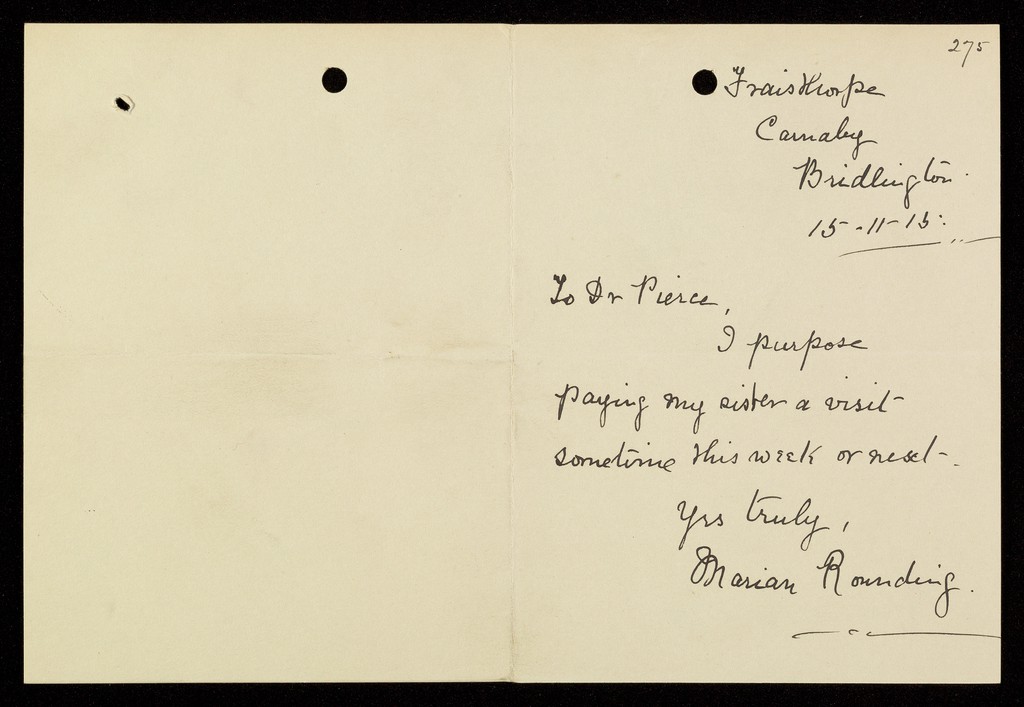 275
Fraisthorpe
Carnaby
Bridlington.
15-11-15.
To Dr Pierce,
I purpose
paying my sister a visit
sometime this week or next.
Yrs truly,
Marian Rounding.